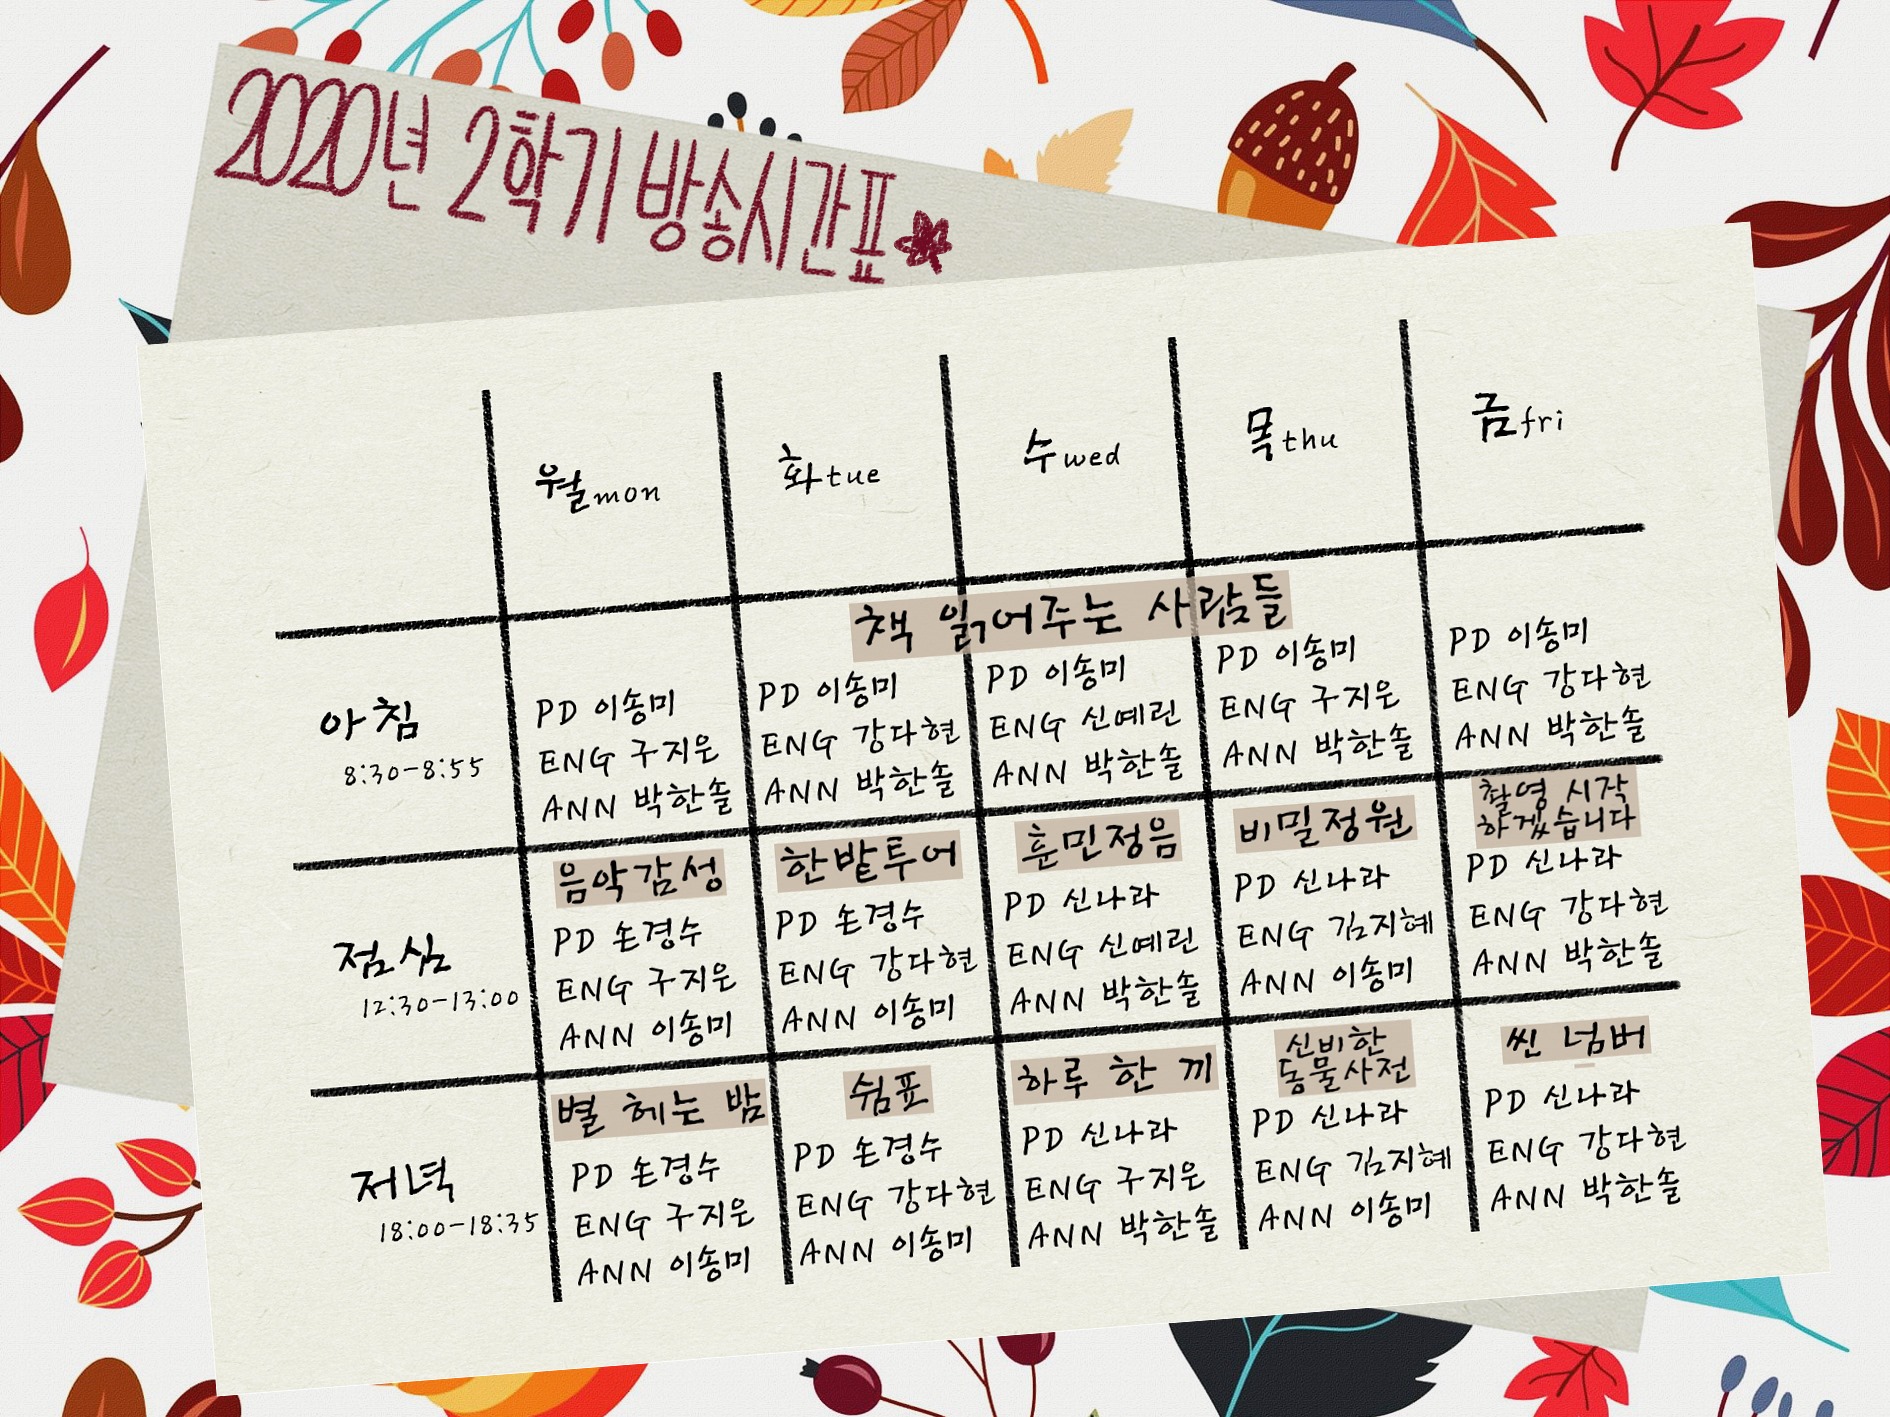 2020년 2학기 방송시간표
월mon
화tue
수wed
목thu
금fri
아침
8:30-8:55
책 읽어주는 사람들
PD 이송미
ENG 구지운
ANN 박한솔
PD 이송미
ENG 강다현
ANN 박한솔
PD 이송미
ENG 신예린
ANN 박한솔
PD 이송미
ENG 구지운
ANN 박한솔
PD 이송미
ENG 강다현
ANN 박한솔
점심
12:30-13:00
음악감성
PD 손경수
ENG 구지운
ANN 이송미
한밭투어
PD 손경수
ENG 강다현
ANN 이송미
훈민정음
PD 신나라
ENG 신예린
ANN 박한솔
비밀정원
PD 신나라
ENG 김지혜
ANN 이송미
촬영 시작
하겠습니다
PD 신나라
ENG 강다현
ANN 박한솔
저녁
18:00-18:35
별 헤는 밤
PD 손경수
ENG 구지운
ANN 이송미
쉼표
PD 손경수
ENG 강다현
ANN 이송미
하루 한 끼
PD 신나라
ENG 구지운
ANN 박한솔
신비한
동물사전
PD 신나라
ENG 김지혜
ANN 이송미
씬 넘버
PD 신나라
ENG 강다현
ANN 박한솔